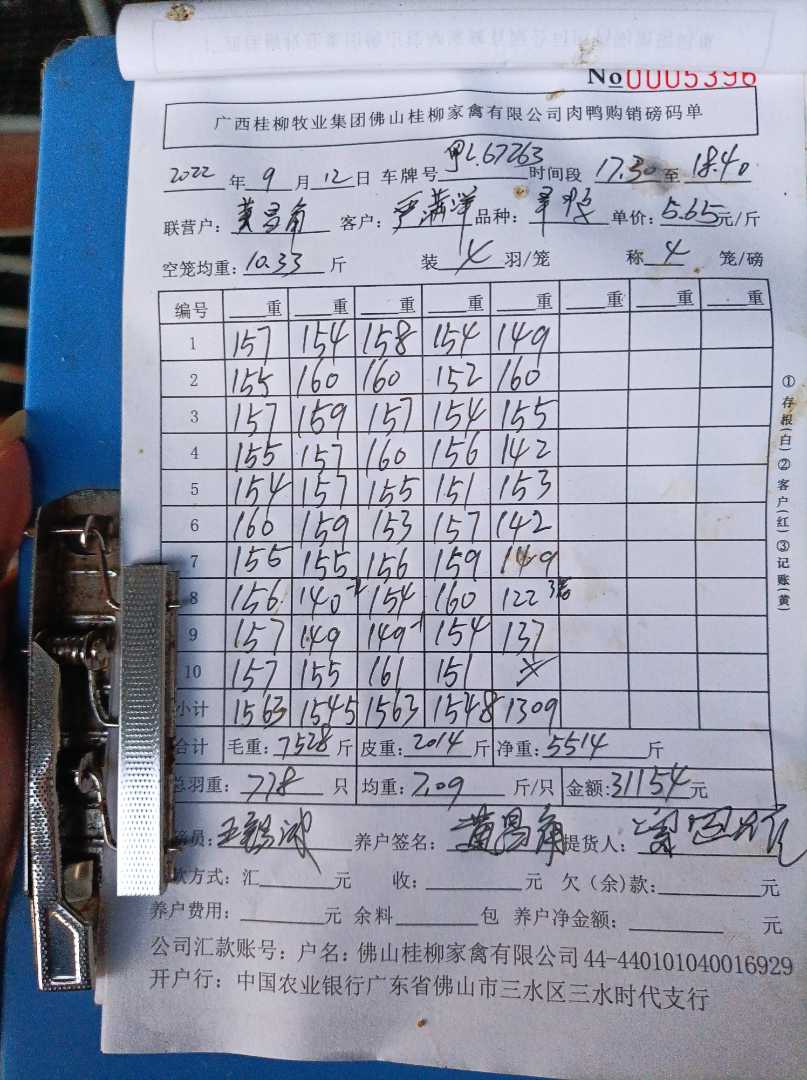 No 0005396
广西桂柳牧业集团佛山桂柳家禽有限公司肉鸭购销磅码单
2022 年 9 月 12 日 车牌号 L.67263 时间段 17.30 至 18.40
联营户: 黄昌角 客户: 严满洋 品种: 单价: 5.65 元/斤
空笼均重: 10.33 斤 装 4 羽/笼 称 4 笼/磅
编号 重 重 重 重 重 重 重 重
1 157 154 158 154 149
2 155 160 160 152 160
3 157 159 157 154 155
4 155 157 160 156 142
5 154 157 155 151 153
6 160 159 153 157 142
7 155 155 156 159 149
8 156 140 -2 154 160 122 3笼
9 157 149 149 -1 154 137
10 157 155 161 151
小计 1563 1545 1563 1548 1309
合计 毛重: 7528 斤 皮重: 2014 斤 净重: 5514 斤
总羽重: 778 只 均重: 7.09 斤/只 金额: 31154 元
员: 养户签名: 黄昌角 提货人:
款方式: 汇 元 收: 元 欠(余)款: 元
养户费用: 元 余料 包 养户净金额: 元
公司汇款账号: 户名: 佛山桂柳家禽有限公司 44-440101040016929
开户行: 中国农业银行广东省佛山市三水区三水时代支行
①存根(白)②客户(红)③记账(黄)